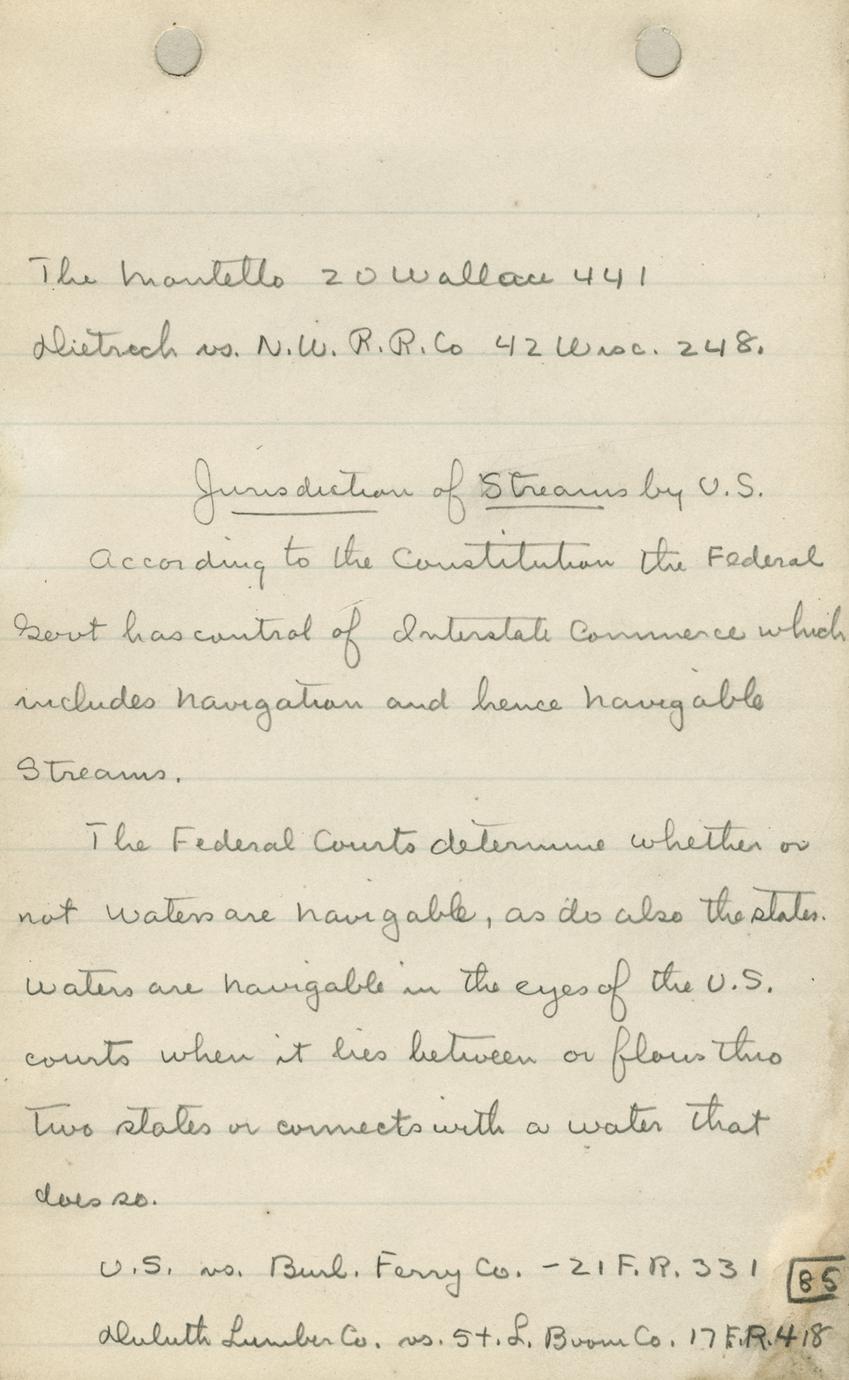 The Montello 20 Wallace 441
Dietrich vs. N.W. R.R. Co 42 Wisc. 248.
Jurisdiction of Streams by U.S.
According to the Constitution the Federal
Govt has control of Interstate Commerce which
includes navigation and hence navigable
Streams.
The Federal Courts determine whether or
not waters are navigable, as do also the states.
Waters are navigable in the eyes of the U.S.
courts when it lies between or flows thro
two states or connects with a water that
does so.
U.S. vs. Burl. Ferry Co. - 21 F.R. 331
85
Duluth Lumber Co. vs. St. L. Boom Co. 17 F.R. 418